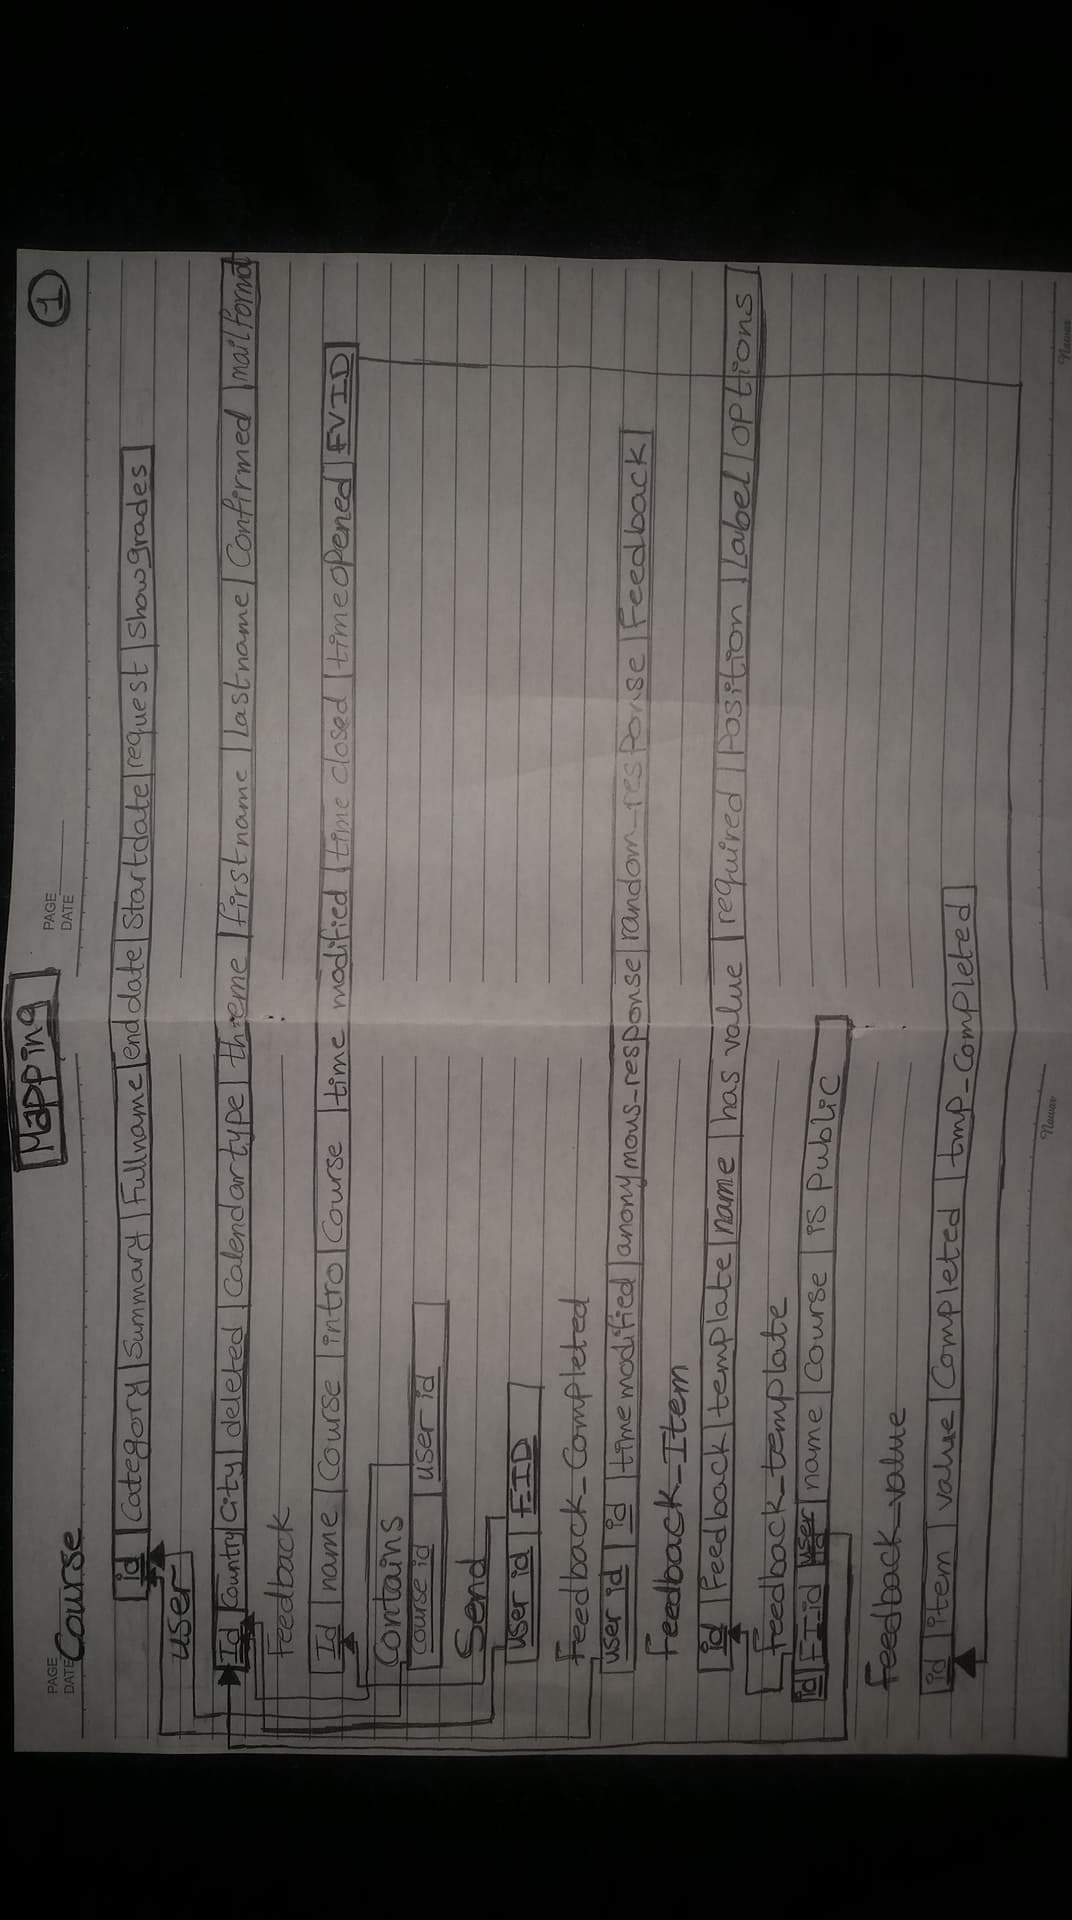 Mapping
1
PAGE
DATE
PAGE
DATE
Course
id | Category | Summary | Fullname | end date | Startdate | request | Showgrades
user
Id | Country | City | deleted | Calendartype | theme | firstname | lastname | Confirmed | mailformat
Feedback
Id | name | Course | intro | Course | time modified | time closed | time opened | FVID
Contains
course id | user id
Send
user id | FID
Feedback_Completed
user id | id | timemodified | anonymous_response | random_response | Feedback
Feedback_Item
id | Feedback | template | name | has value | required | Position | Label | OPtions
Feedback_template
id | FI_id | user id | name | Course | is Public
Feedback_value
id | item | value | Completed | tmp_Completed
Nawar
Nawar